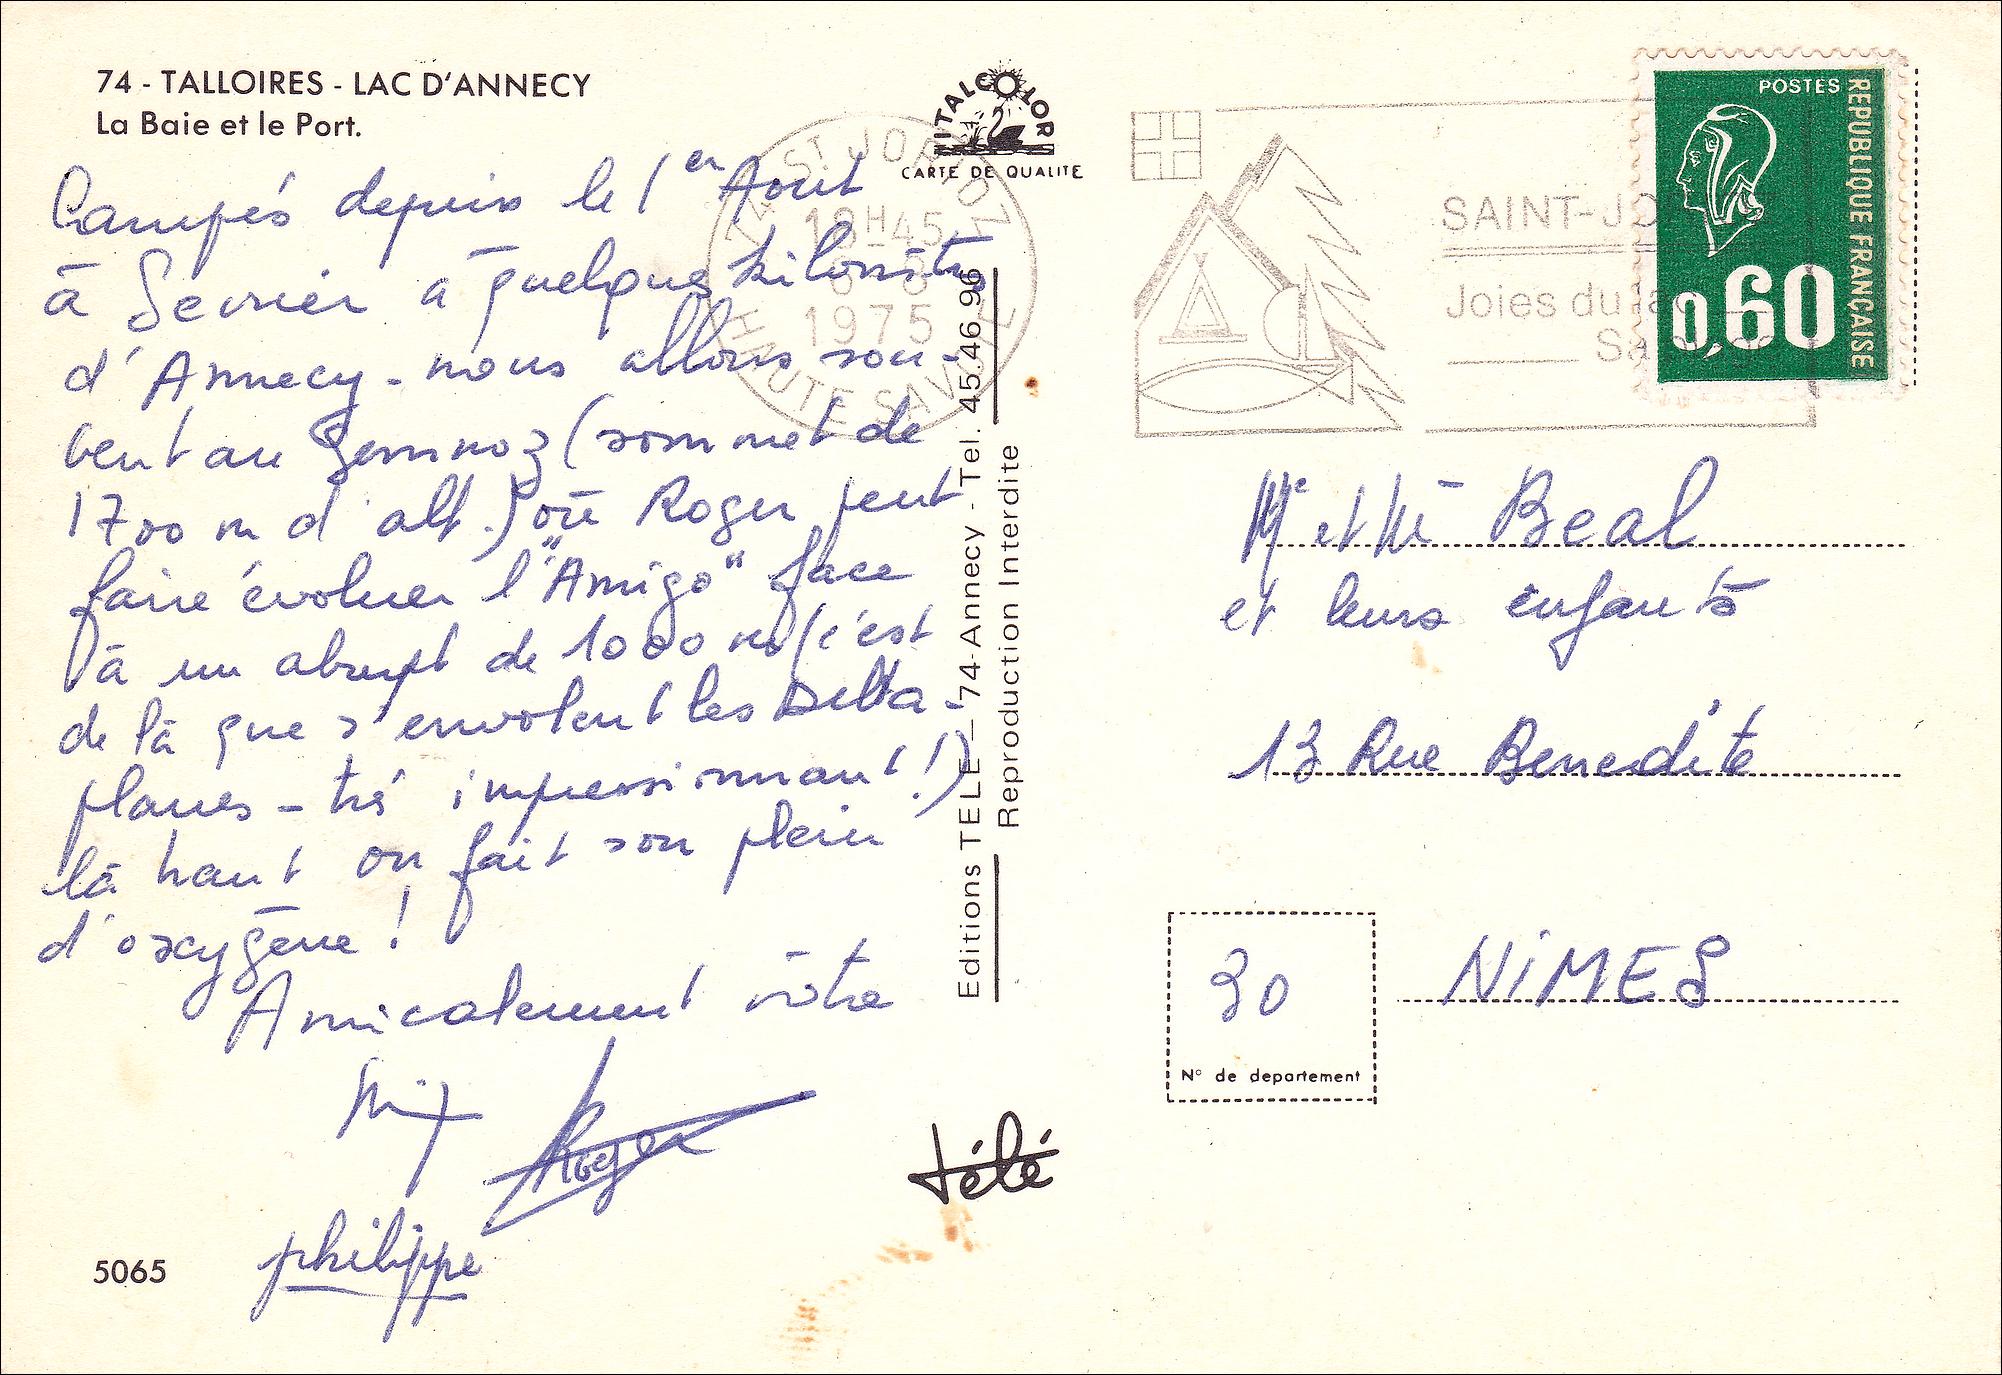 74 - TALLOIRES - LAC D'ANNECY
La Baie et le Port.
Campés depuis le 1er Aout
à Sevrier a quelque kilomètres
d'Annecy - nous allons sou-
vent au Semnoz (sommet de
1700 m d'alt.) où Roger peut
faire évoluer l'"Amigo" face
à un abrupt de 1000 m (c'est
de là que s'envolent les Delta-
planes - très impressionnant!)
là haut on fait son plein
d'oxygène !
Amicalement vôtre
Roger
philippe
5065
ITALCOLOR
CARTE DE QUALITE
ST JORIOZ
18H45
1975
HAUTE SAVOIE
Editions TELE - 74-Annecy - Tel. 45.46.96
Reproduction Interdite
télé
SAINT-JO
Joies du la
Sa
POSTES
REPUBLIQUE FRANÇAISE
0,60
Mr et Me Beal
et leurs enfants
13 Rue Benedite
30
NIMES
N° de departement